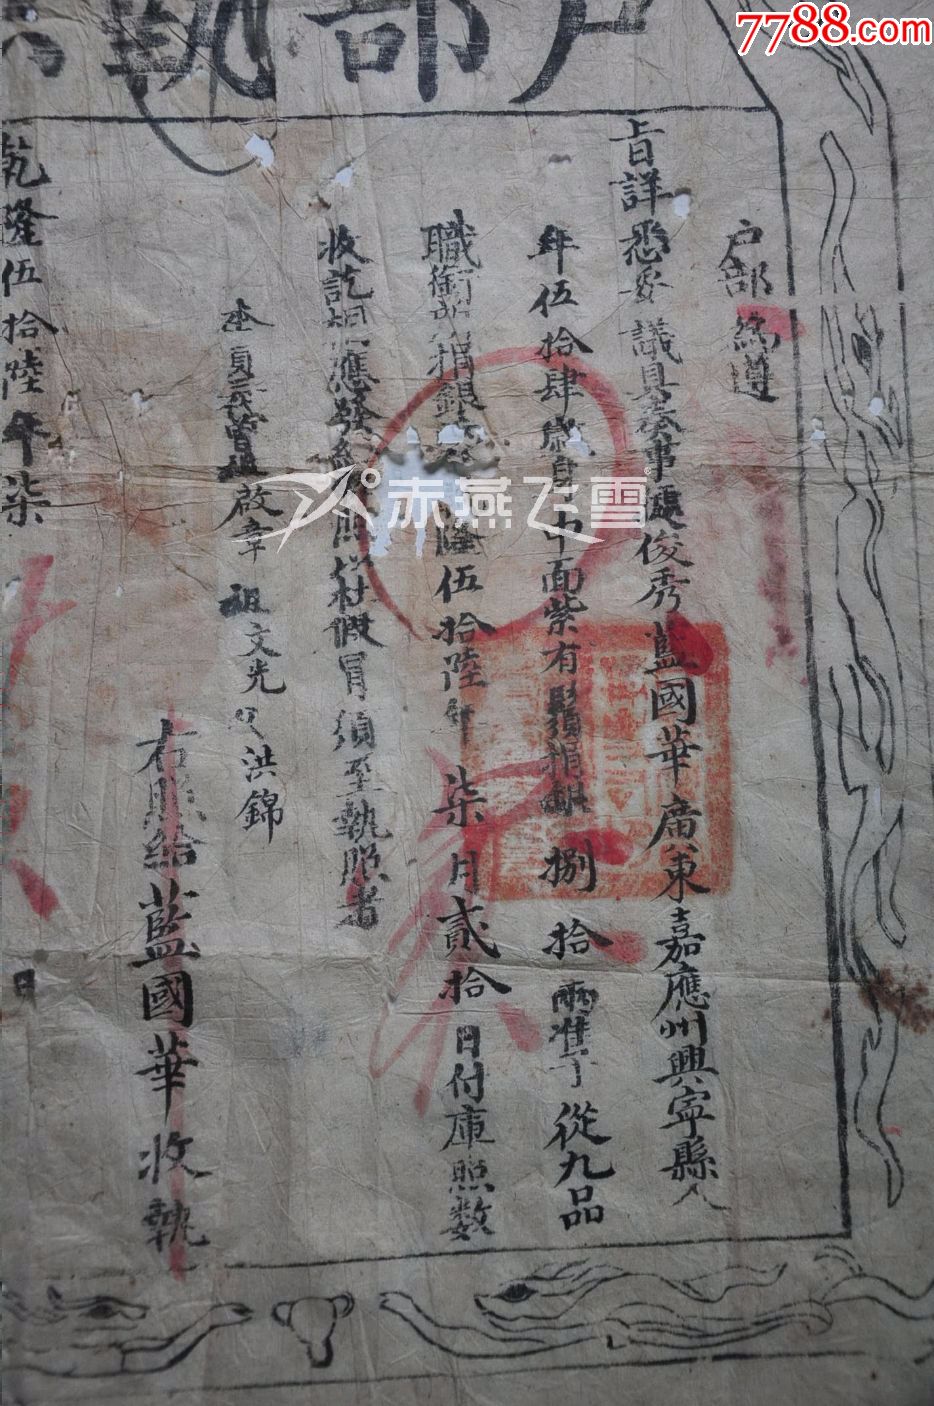 7788.com
户部執
户部為遵
旨詳悉妥議具奏事據俊秀藍國華廣東嘉應州興寧縣人
年伍拾肆歲身中面紫有鬚捐銀捌拾兩准予從九品
職銜所捐銀 隆伍拾陸年柒月貳拾日付庫照数
收訖相應發給執照以杜假冒須至執照者
曾祖啟章 祖文先 父洪錦
右照給藍國華收執
乾隆伍拾陸年柒
日
赤燕飞雪